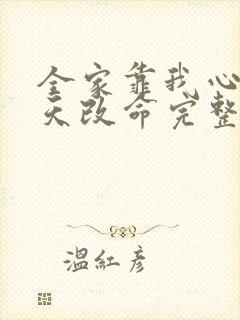 全家靠我心
天改命完整
温紅彦